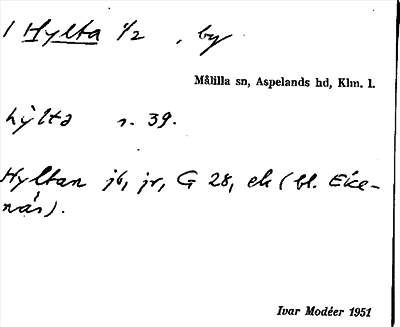 1 Hylta 1/2 , by
Målilla sn, Aspelands hd, Klm. l.
hy̆lta s. 39.
Hyltan jb, jr, G 28, ek (bl. Eke-
näs).
Ivar Modéer 1951